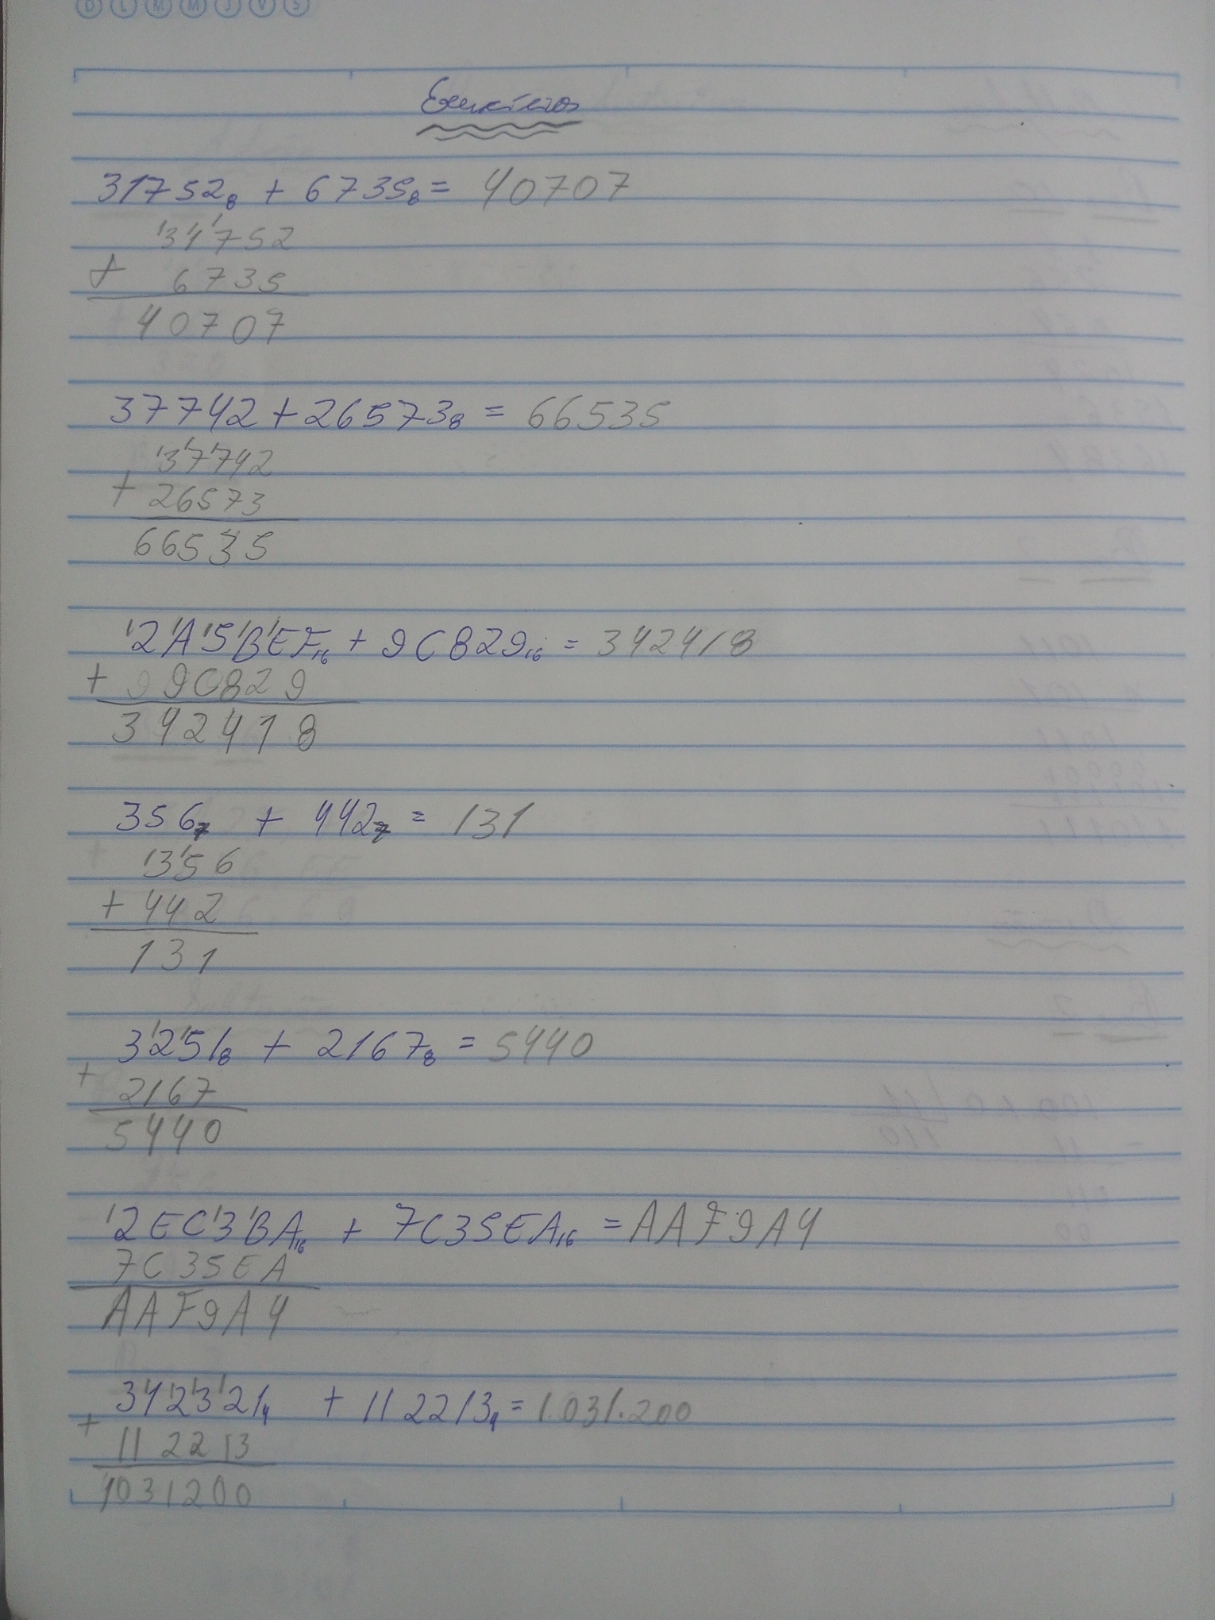 D L M M J V S
Exercícios
31752₈ + 6735₈ = 40707
31752
+ 6735
40707
37742 + 26573₈ = 66535
37742
+ 26573
66535
2A5BEF₁₆ + 9C829₁₆ = 342418
+ 9C829
342418
356₇ + 442₇ = 131
356
+ 442
131
3251₈ + 2167₈ = 5440
+ 2167
5440
2EC3BA₁₆ + 7C35EA₁₆ = AAF9A4
7C35EA
AAF9A4
312321₄ + 112213₄ = 1.031.200
+ 112213
1031200